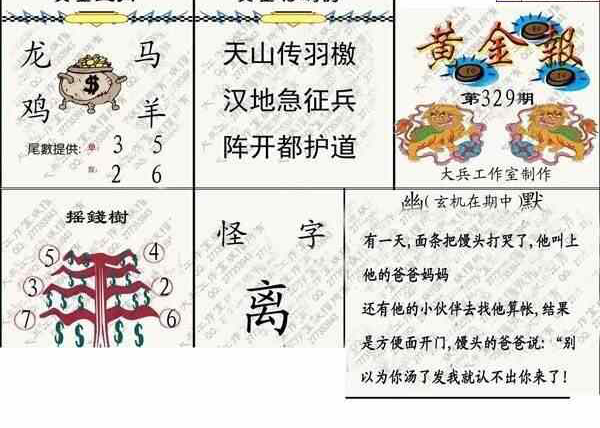 龙 马
鸡 羊
尾數提供: 单: 3 5
2 6
天山传羽檄
汉地急征兵
阵开都护道
黄金報
第329期
大兵工作室制作
摇錢樹
5 4
3 2
7 6
怪 字
离
幽(玄机在期中)默
有一天,面条把馒头打哭了,他叫上
他的爸爸妈妈
还有他的小伙伴去找他算帐,结果
是方便面开门,馒头的爸爸说:“别
以为你汤了发我就认不出你来了!